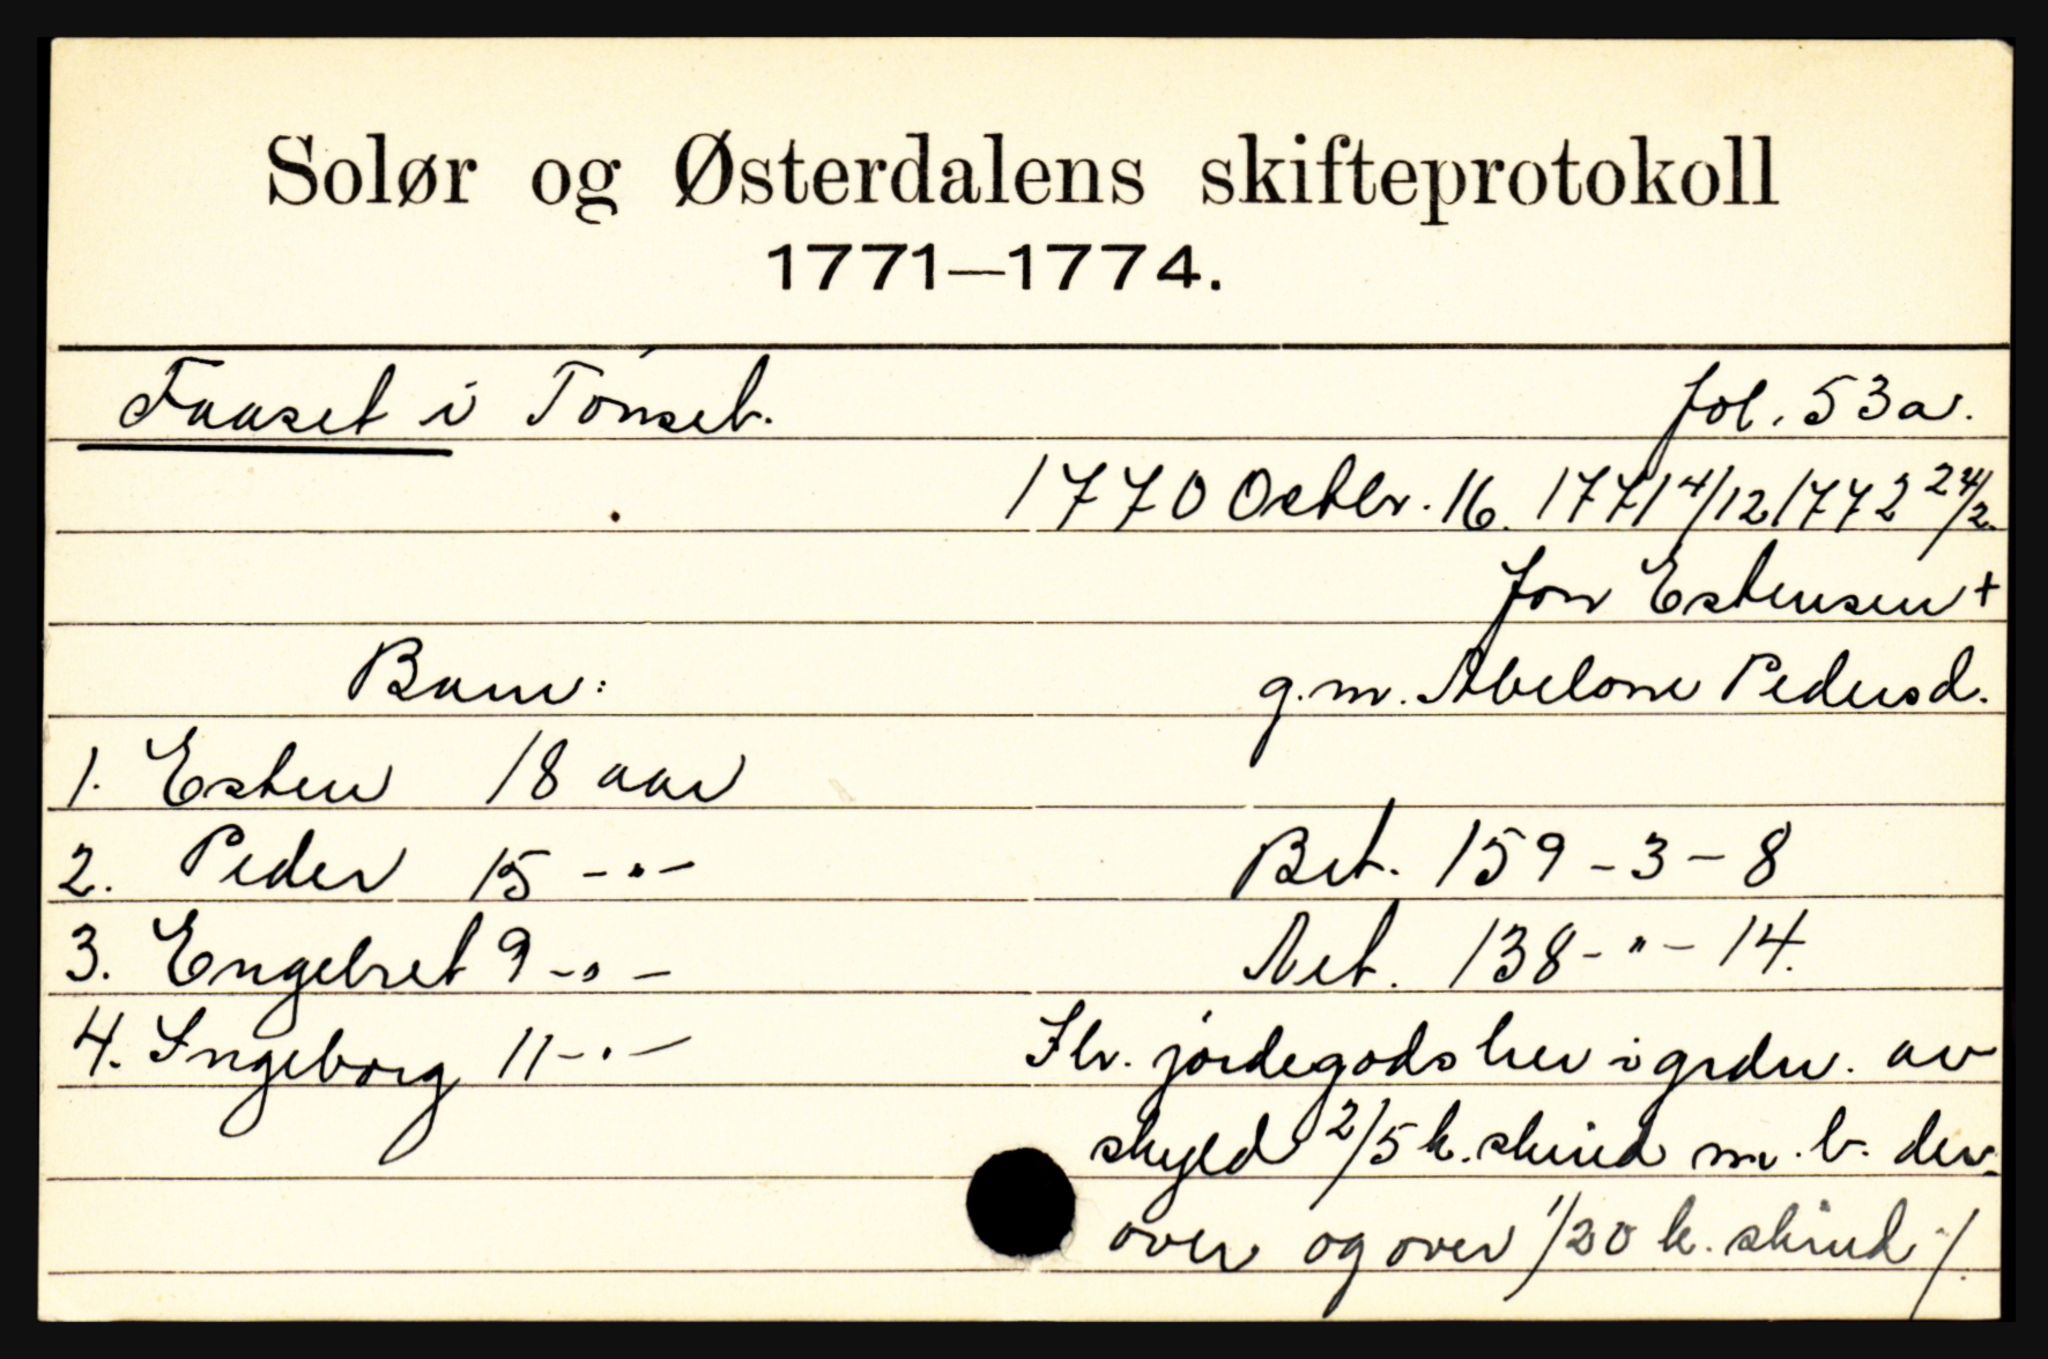 Solør og Østerdalens skifteprotokoll
1771—1774.
Faaset i Tönset.
fol. 53a.
1770 Octbr. 16. 1771 4/12 1772 24/2.
Jon Estensen +
g.m. Abelone Pedersd.
Barn:
1. Esten 18 aar
2. Peder 15 -"-
3. Engebret 9 -"-
4. Ingeborg 11 -"-
Brt. 159 - 3 - 8
Net. 138 - " - 14.
jördegods her i grdn. av
skyld 2/5 h. skind m. b. der-
over og over 1/20 h. skind /.